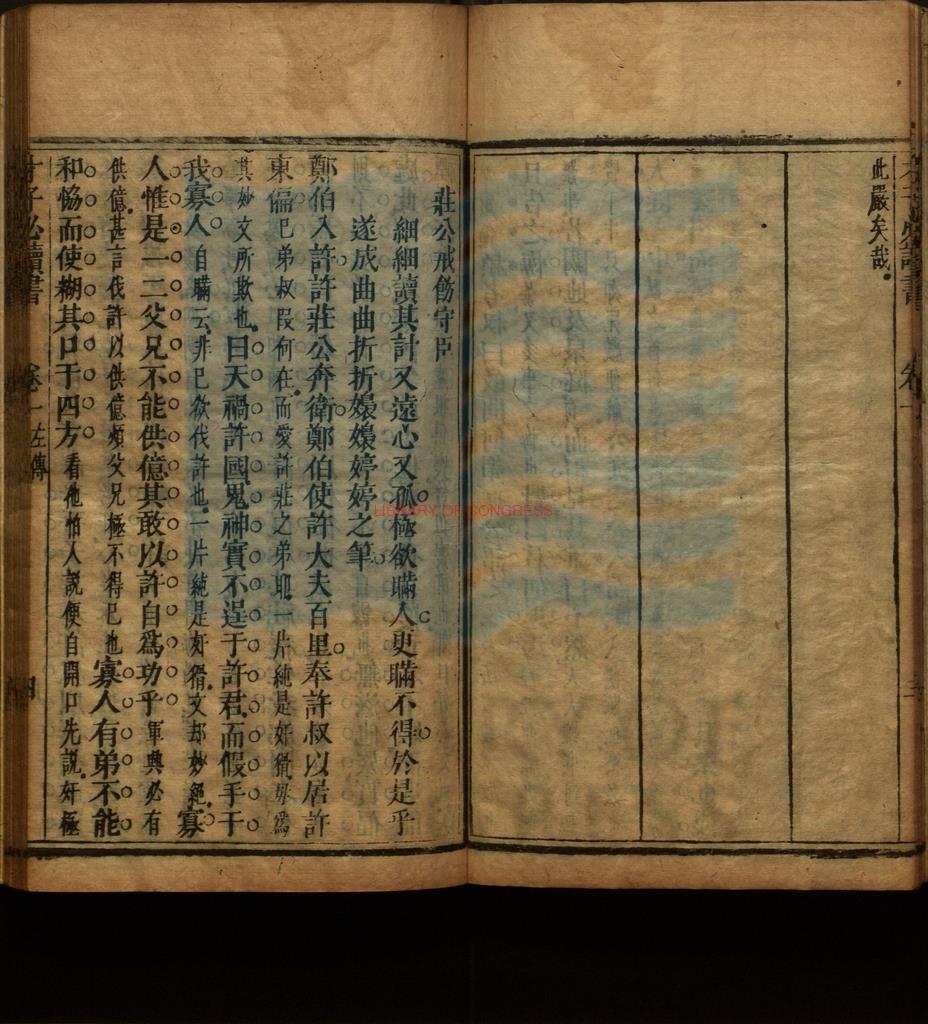 此嚴矣哉
莊公戒飭守臣
細細讀其計又遠心又孤極欲瞞人更瞞不得於是乎
遂成曲曲折折嬝嬝婷婷之筆
鄭伯入許許莊公奔衛鄭伯使許大夫百里奉許叔以居許
東偏已弟叔段何在而愛許莊之弟耶一片純是奸猾毋為
其妙文所欺也曰天禍許國鬼神實不逞于許君而假手于
我寡人自瞞云非已欲伐許也一片純是奸猾文却妙絕寡
人惟是一二父兄不能供億其敢以許自爲功乎軍興必有
供億甚言伐許以供億煩父兄極不得已也寡人有弟不能
和恊而使糊其口于四方看他怕人說便自開口先說奸極
才子必讀書 卷一 左傳 四
LIBRARY OF CONGRESS